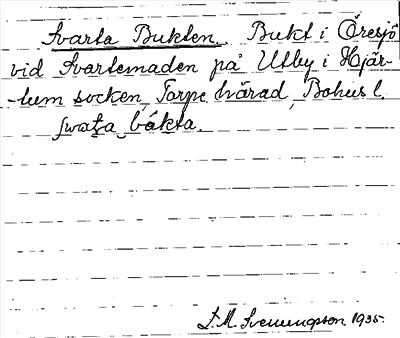 Svarta Bukten. Bukt i Öresjö
vid Svartemaden på Utby i Hjär-
-tum socken, Torpe härad, Bohusl.
swaţa bákta.
S.M. Svenungsson 1935.